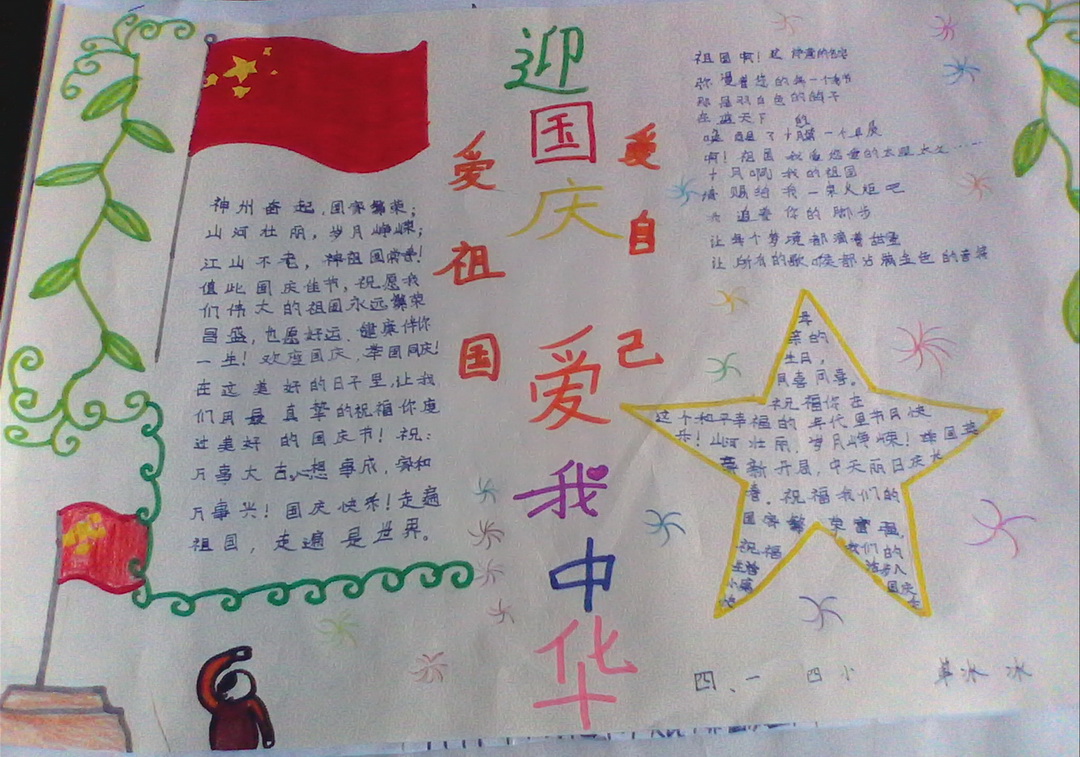 迎国庆爱我中华
爱祖国
爱自己
神州奋起，国家繁荣；
山河壮丽，岁月峥嵘；
江山不老，神祖国常春！
值此国庆佳节，祝愿我
们伟大的祖国永远繁荣
昌盛，也愿好运、健康伴你
一生！欢度国庆，举国同庆！
在这美好的日子里，让我
们用最真挚的祝福你度
过美好的国庆节！祝：
万事大吉，心想事成，家和
万事兴！国庆快乐！走遍
祖国，走遍是世界。
祖国啊！
的每一个春节
那是双白色的鸽子
在蓝天下
醒了十月第一个早晨
啊！祖国我爱您爱的太深太久……
十月啊我的祖国
赐给我一束火炬吧
追着你的脚步
让每个梦境都滴着甜蜜
让所有的歌喉都沾满金色的音符
母
亲的
生日，
同喜同喜。
祝福你在
这个和平幸福的年代里节日快
乐！山河壮丽，岁月峥嵘！举国英
豪新开展，中天丽日庆长
春。祝福我们的
国家繁荣富强，
祝福我们的
生活
小康
国庆
四、一 四小 冰冰